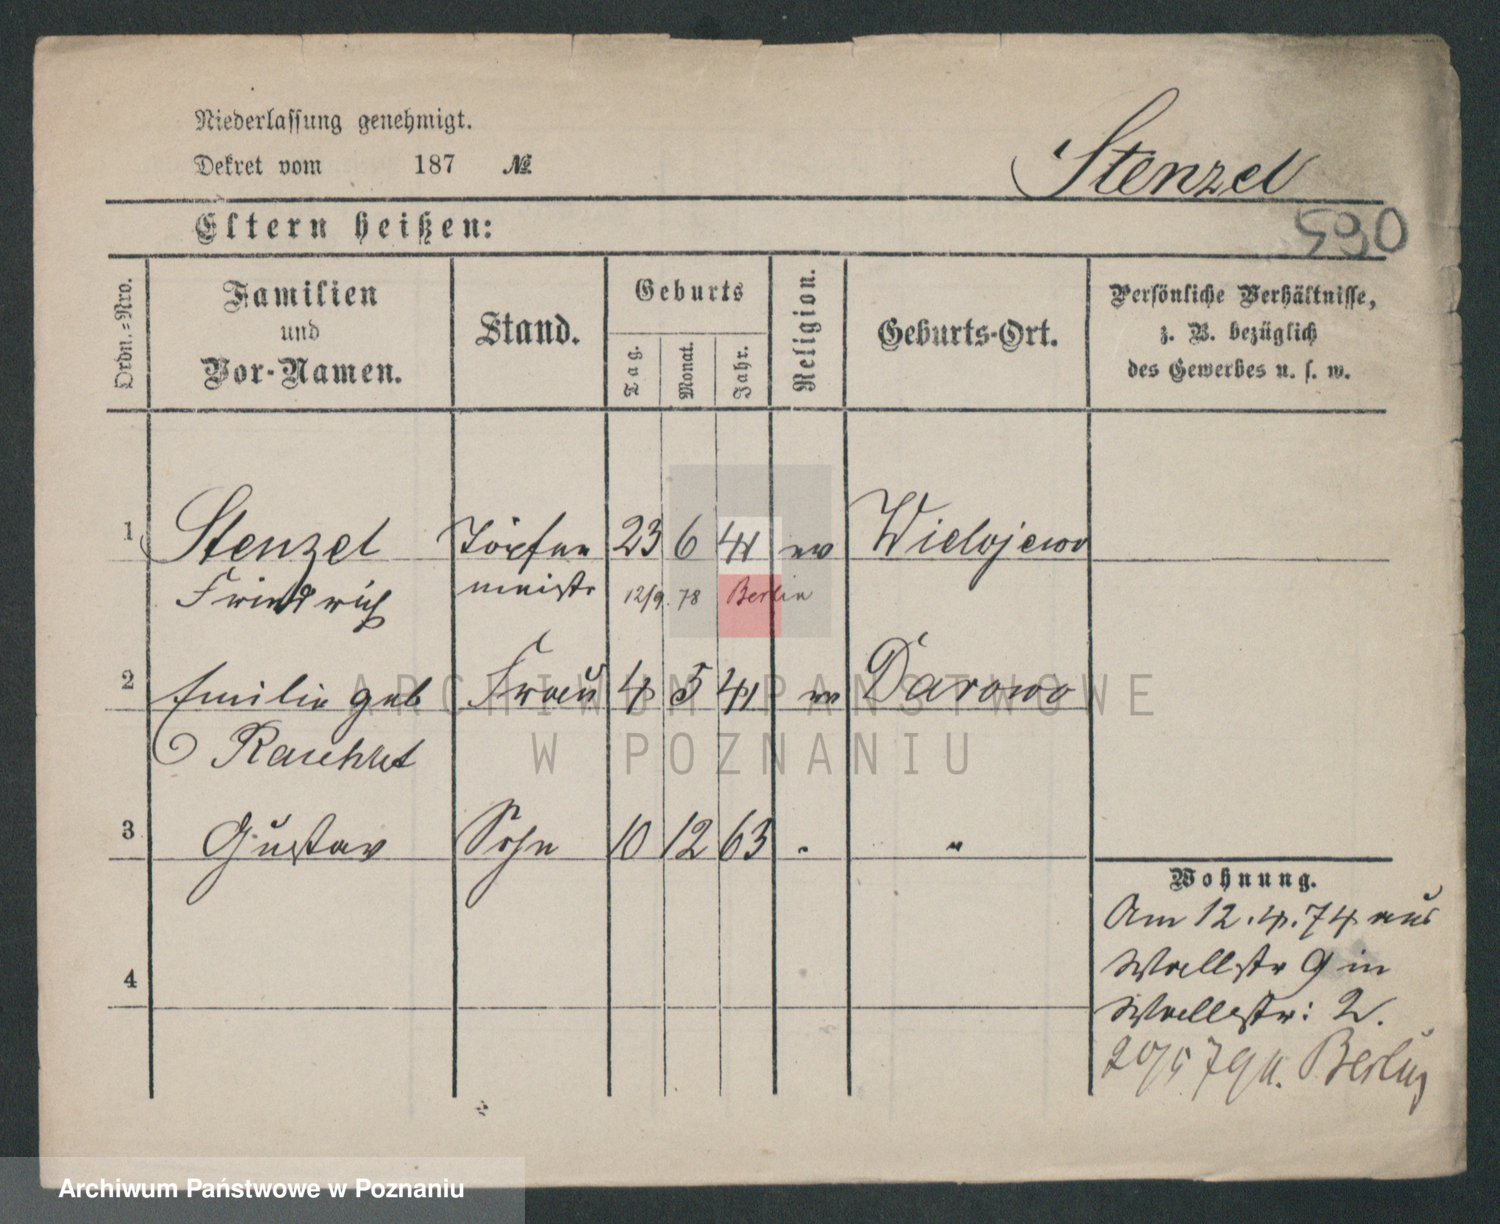 Niederlassung genehmigt.
Dekret vom 187 №
Stenzel
Eltern heißen:
590
Ordn.=Nro.
Familien
und
Vor-Namen.
Stand.
Geburts
Tag.
Monat.
Jahr.
Religion.
Geburts-Ort.
Persönliche Verhältnisse,
z. B. bezüglich
des Gewerbes u. s. w.
1 Stenzel Töpfer 23 6 41 ev Wielojewo
Friedrich meistr 12/9. 78 Berlin
2 Emilie geb Frau 4 5 41 ev Darowo
3 Gustav Sohn 10 12 63 " "
4
Wohnung.
Am 12.4.74 aus
Wallstr 9 in
Wallstr: 2.
79 n. Berlin
ARCHIWUM PAŃSTWOWE
W POZNANIU
Archiwum Państwowe w Poznaniu